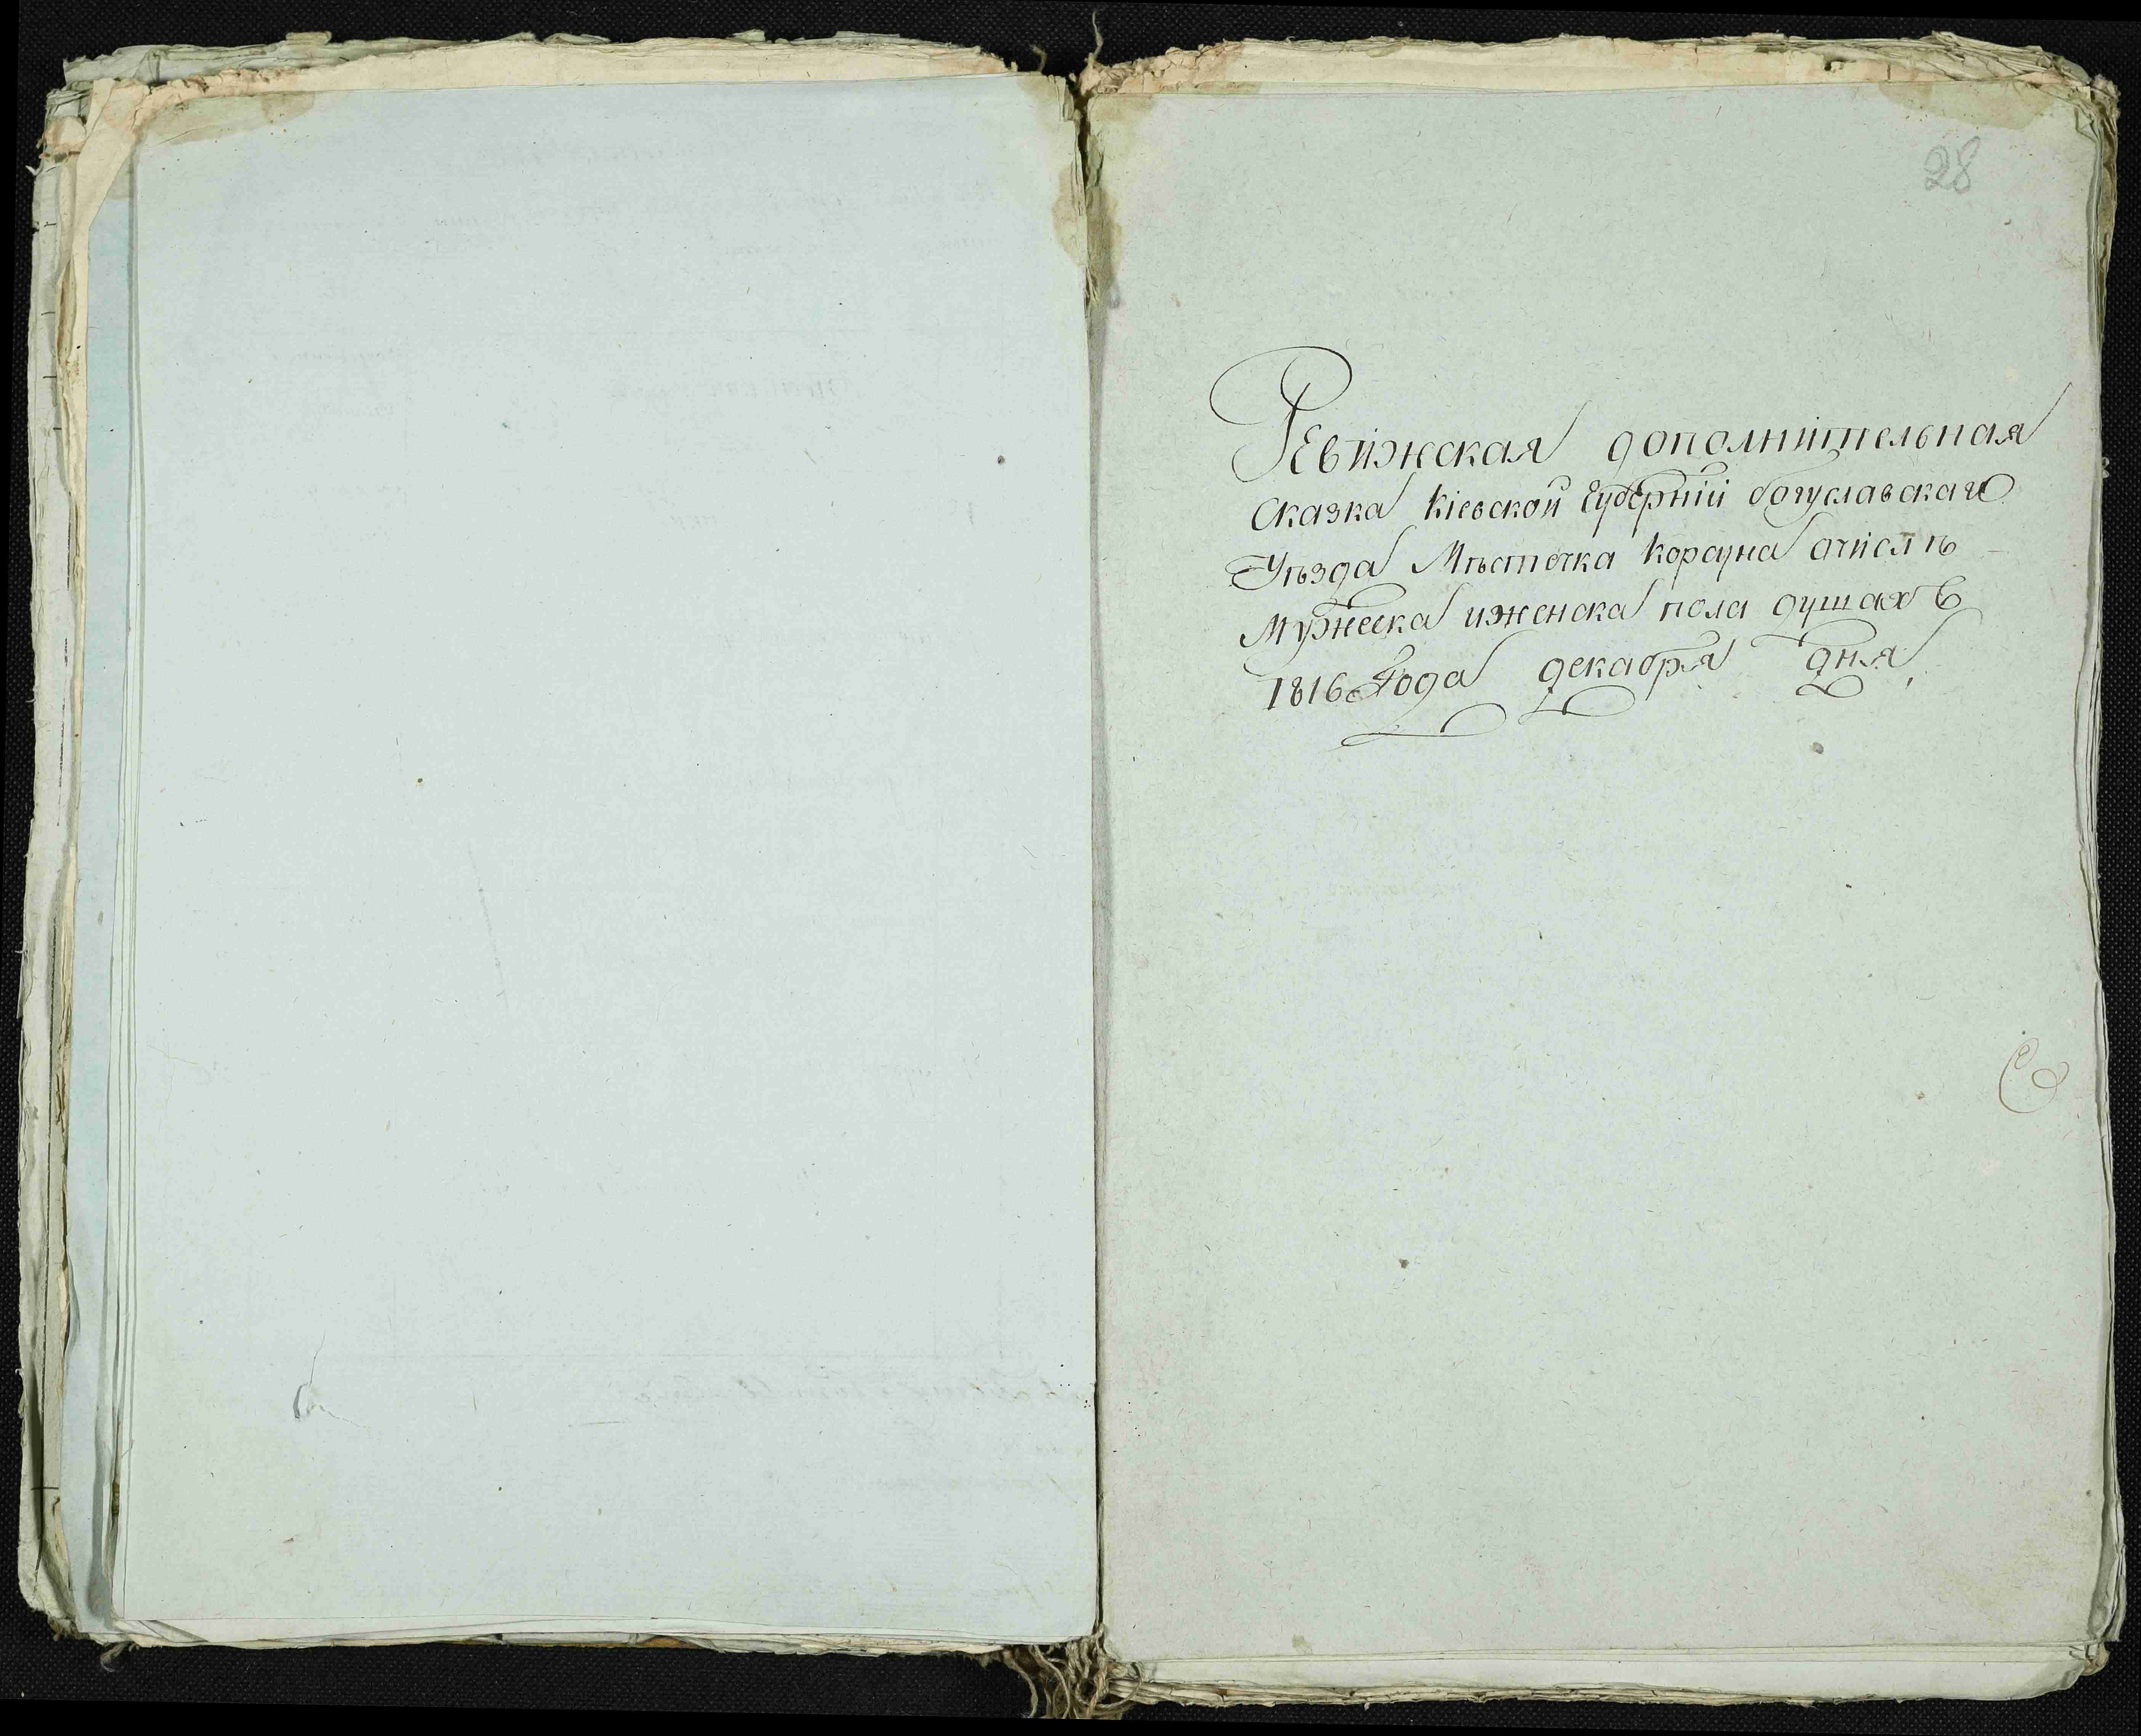 28
Ревижская дополнительная
Сказка Кіевской Губерніи богуславскаго
Уѣзда Мѣстечка Корсуна очислѣ
Мужеска иженска пола душахъ
1816 года декабря дня